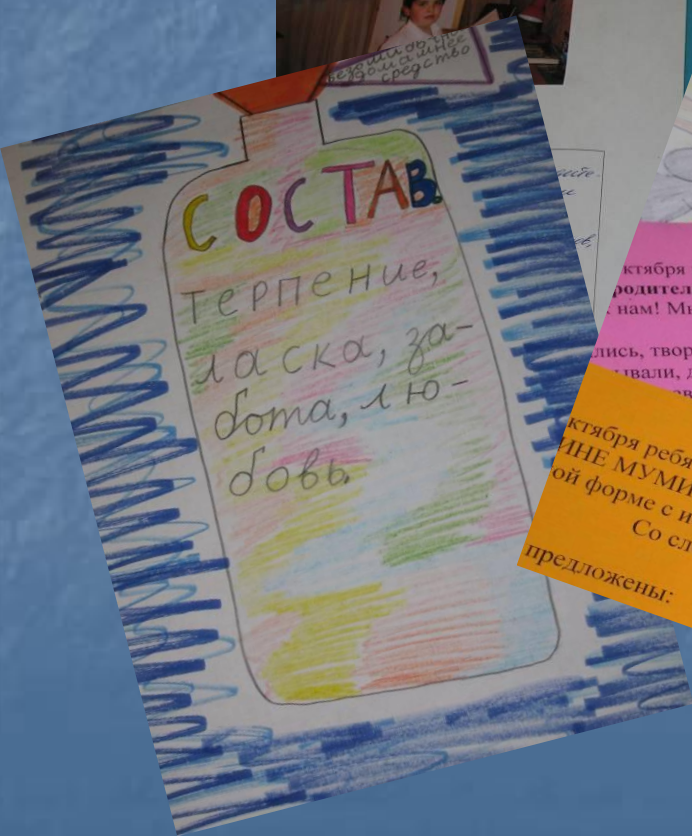 домашнее
средство
СОСТАВ.
терпение,
ласка, за-
бота, лю-
бовь.
ктября
родител
нам! Мы
лись, твор
ивали, д
ктября ребя
ИНЕ МУМИ
ой форме с и
Со сл
предложены: